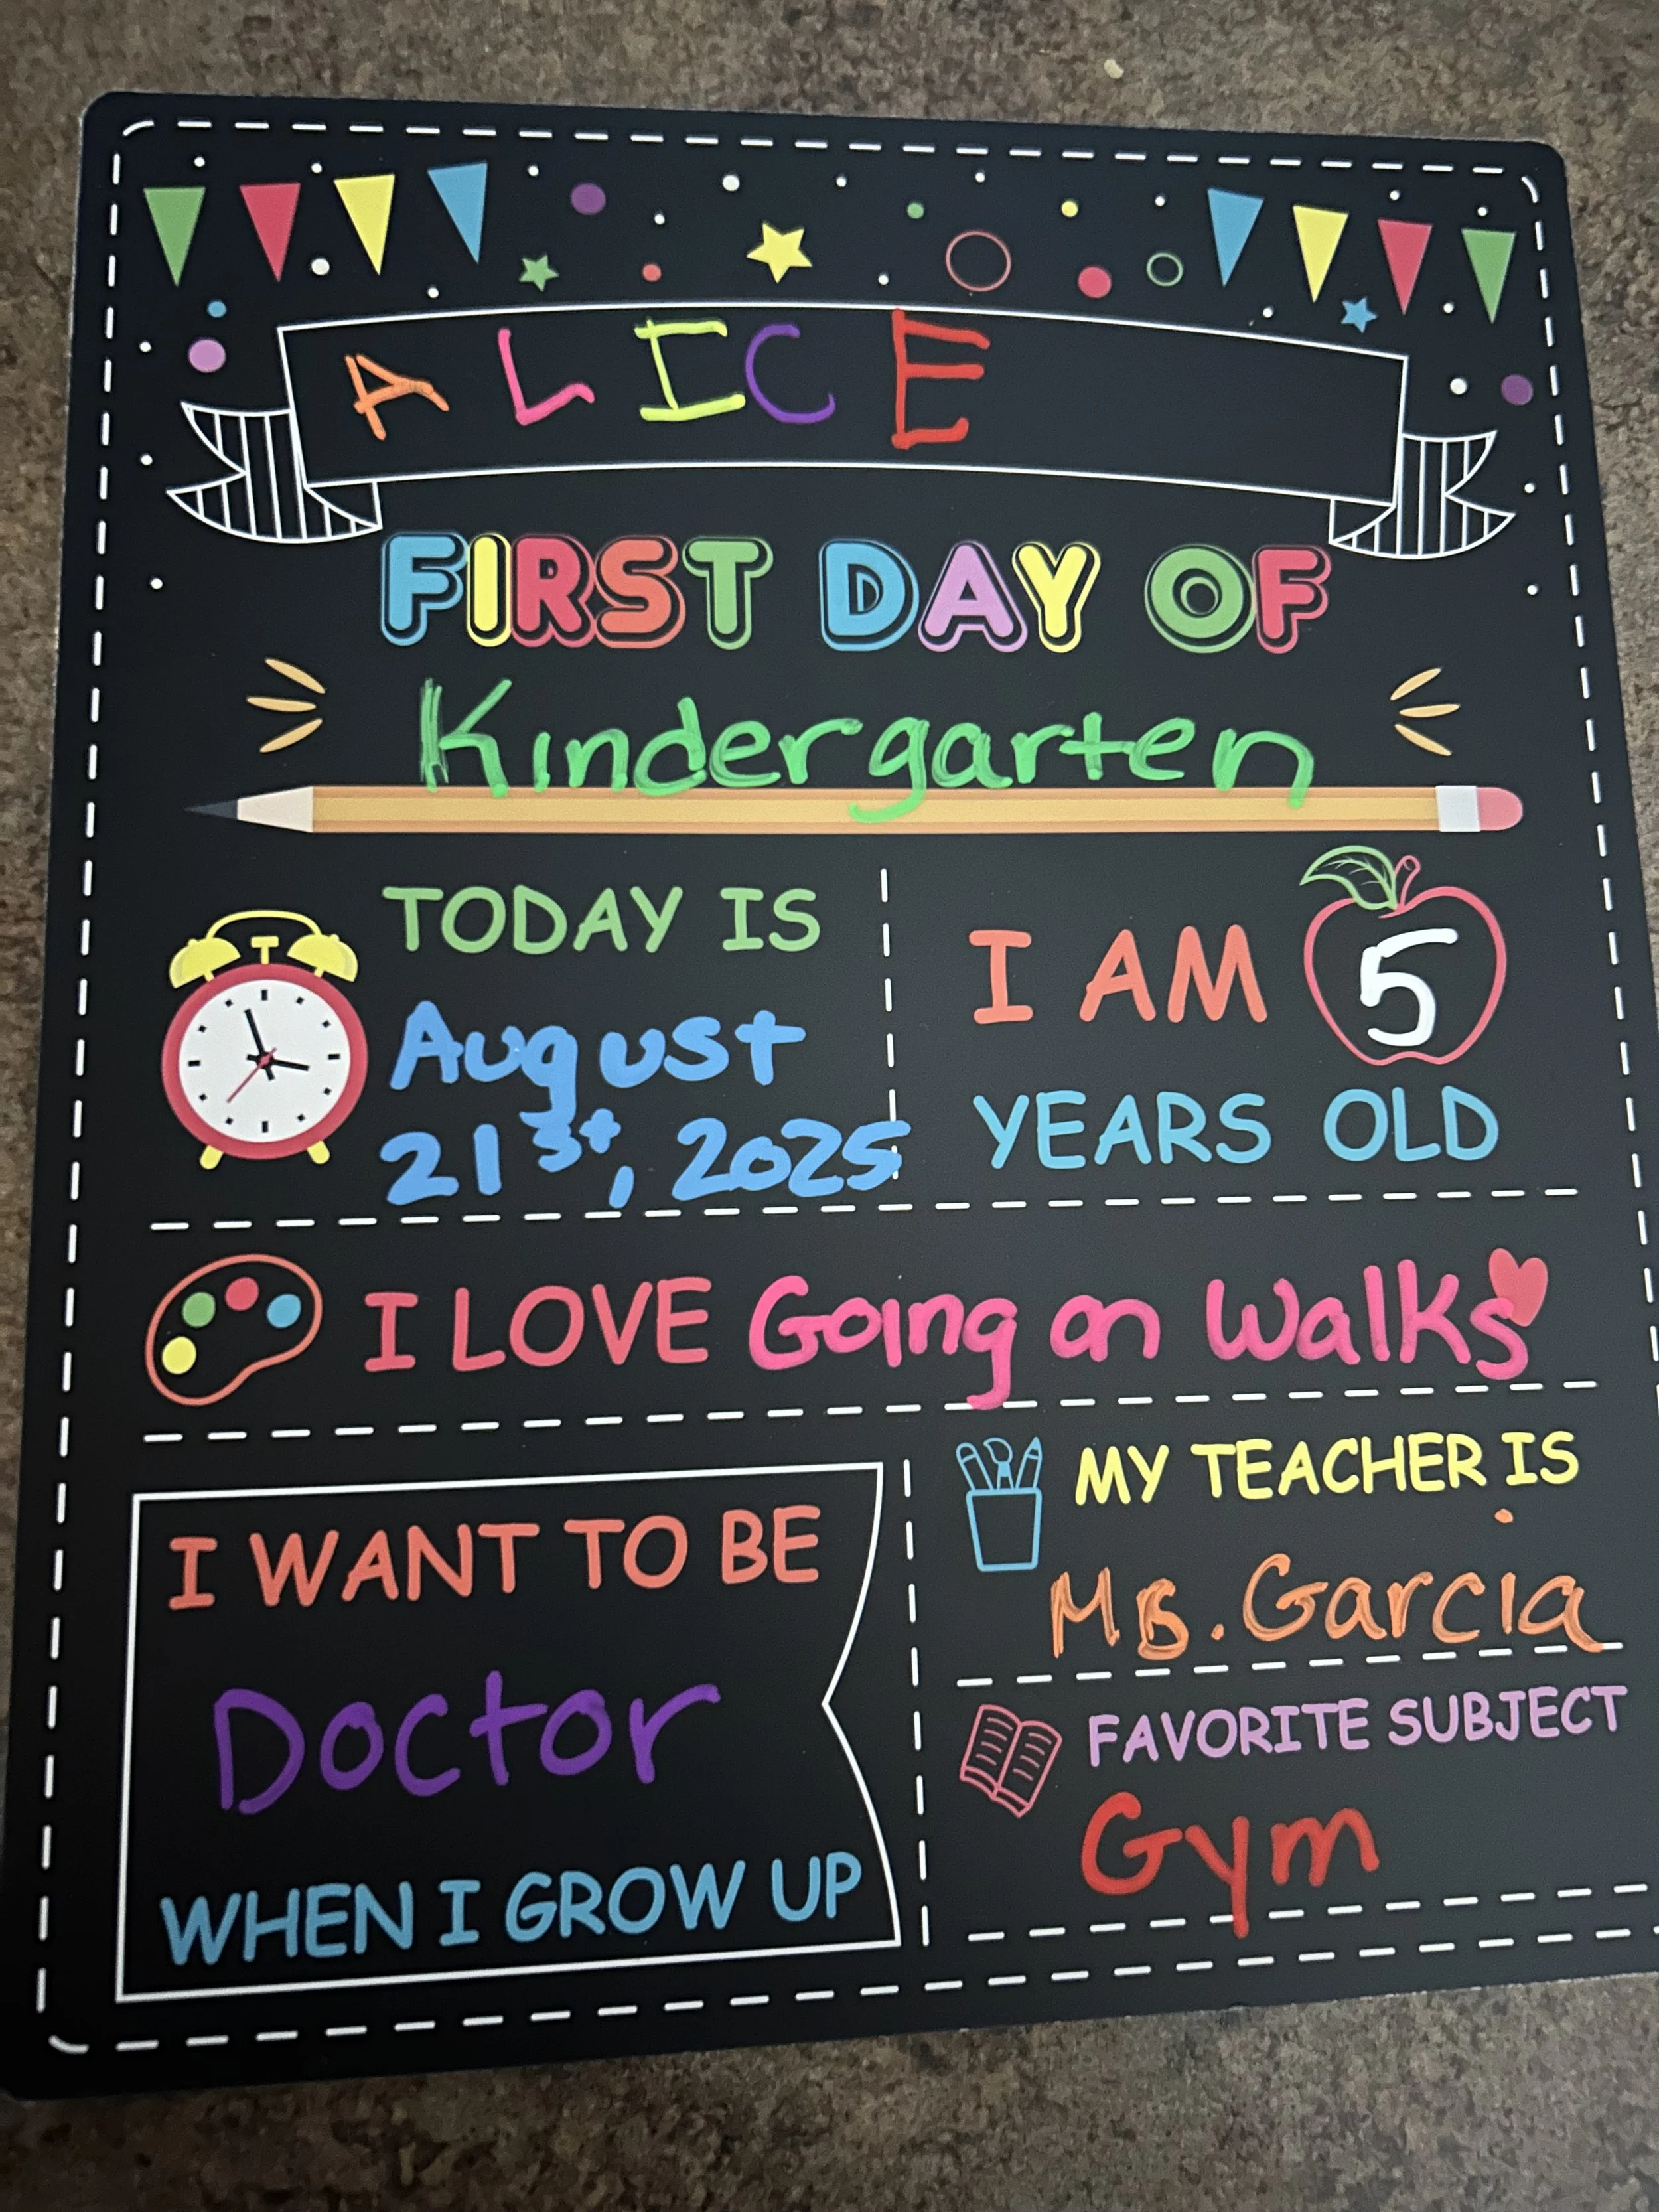 ALICE
FIRST DAY OF
Kindergarten
TODAY IS
August
21st, 2025
I AM 5
YEARS OLD
I LOVE Going on Walks
I WANT TO BE
Doctor
WHEN I GROW UP
MY TEACHER IS
Ms. Garcia
FAVORITE SUBJECT
Gym